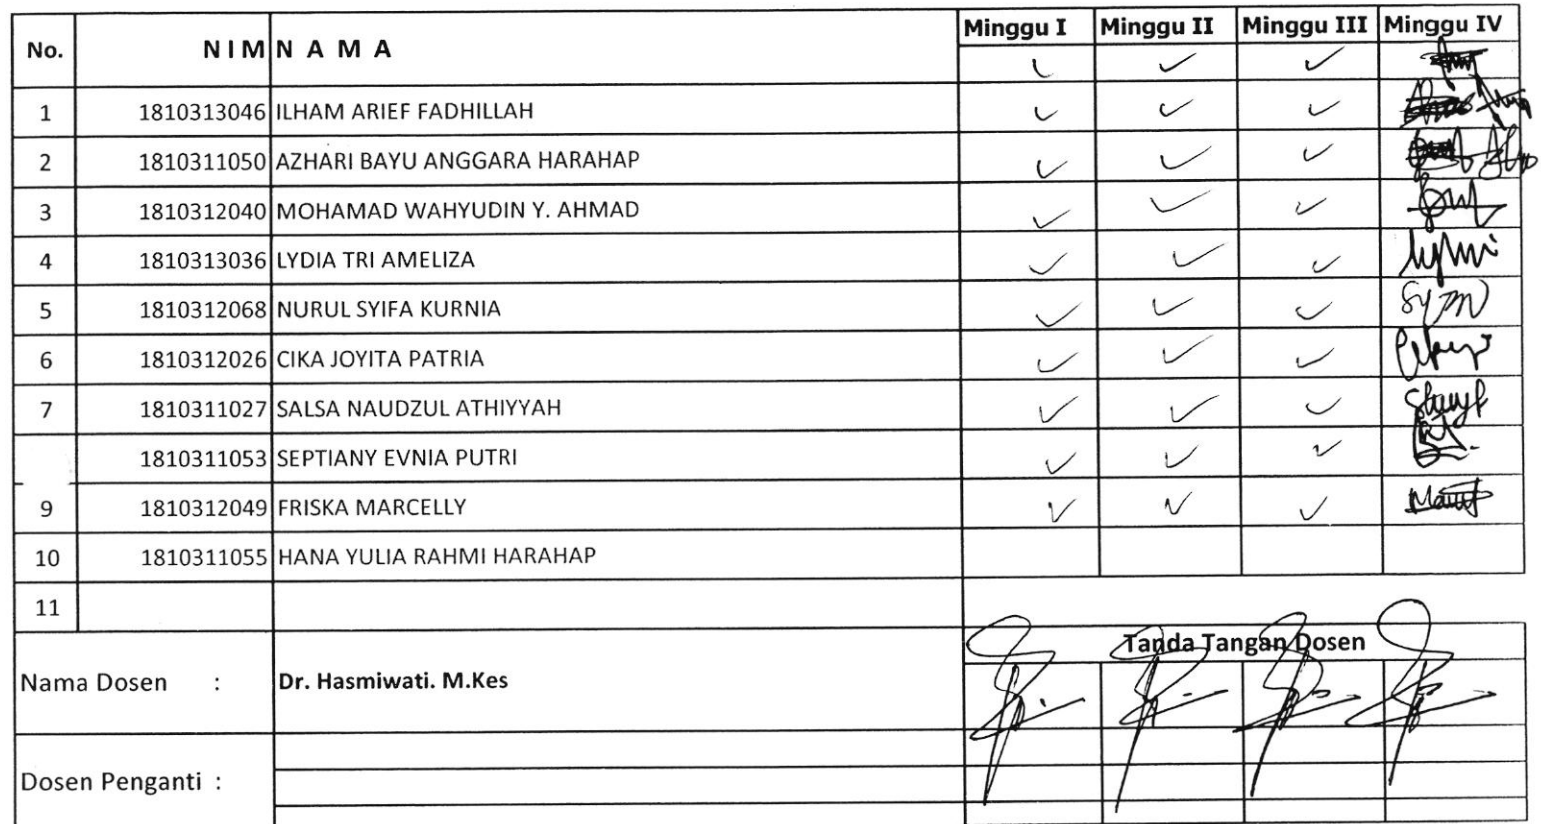 No. NIM N A M A Minggu I Minggu II Minggu III Minggu IV
✓ ✓ ✓
1 1810313046 ILHAM ARIEF FADHILLAH ✓ ✓ ✓
2 1810311050 AZHARI BAYU ANGGARA HARAHAP ✓ ✓ ✓
3 1810312040 MOHAMAD WAHYUDIN Y. AHMAD ✓ ✓ ✓
4 1810313036 LYDIA TRI AMELIZA ✓ ✓ ✓
5 1810312068 NURUL SYIFA KURNIA ✓ ✓ ✓
6 1810312026 CIKA JOYITA PATRIA ✓ ✓ ✓
7 1810311027 SALSA NAUDZUL ATHIYYAH ✓ ✓ ✓
1810311053 SEPTIANY EVNIA PUTRI ✓ ✓ ✓
9 1810312049 FRISKA MARCELLY ✓ ✓ ✓
10 1810311055 HANA YULIA RAHMI HARAHAP
11
Tanda Tangan Dosen
Nama Dosen : Dr. Hasmiwati. M.Kes
Dosen Penganti :